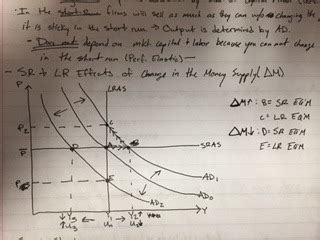 · In the short run firms will sell as much as they can w/o changing the
it is sticky in the short run → Output is determined by AD.
- Does not depend on mkt capital + labor because you can not change
in the short run (Perf. Elastic) —
- SR + LR Effects of Change in the Money Supply (ΔM)
P
LRAS
ΔM↑: B = SR EQM
C = LR EQM
P2
C
ΔM↓: D = SR EQM
E = LR EQM
P̄
D
A
B
SRAS
AD1
E
AD0
AD2
Y